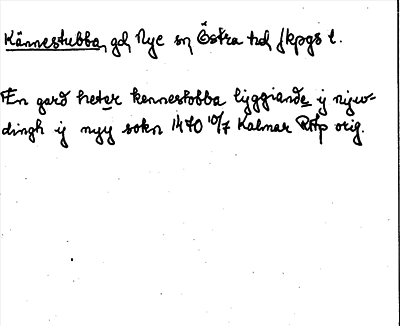 Kännestubba, gd, Nye sn Östra hd Jkpgs l.
En gard heter kennestobba liggiande ij nyiw-
dingh ij nyy sokn 1470 10/7 Kalmar RAp orig.